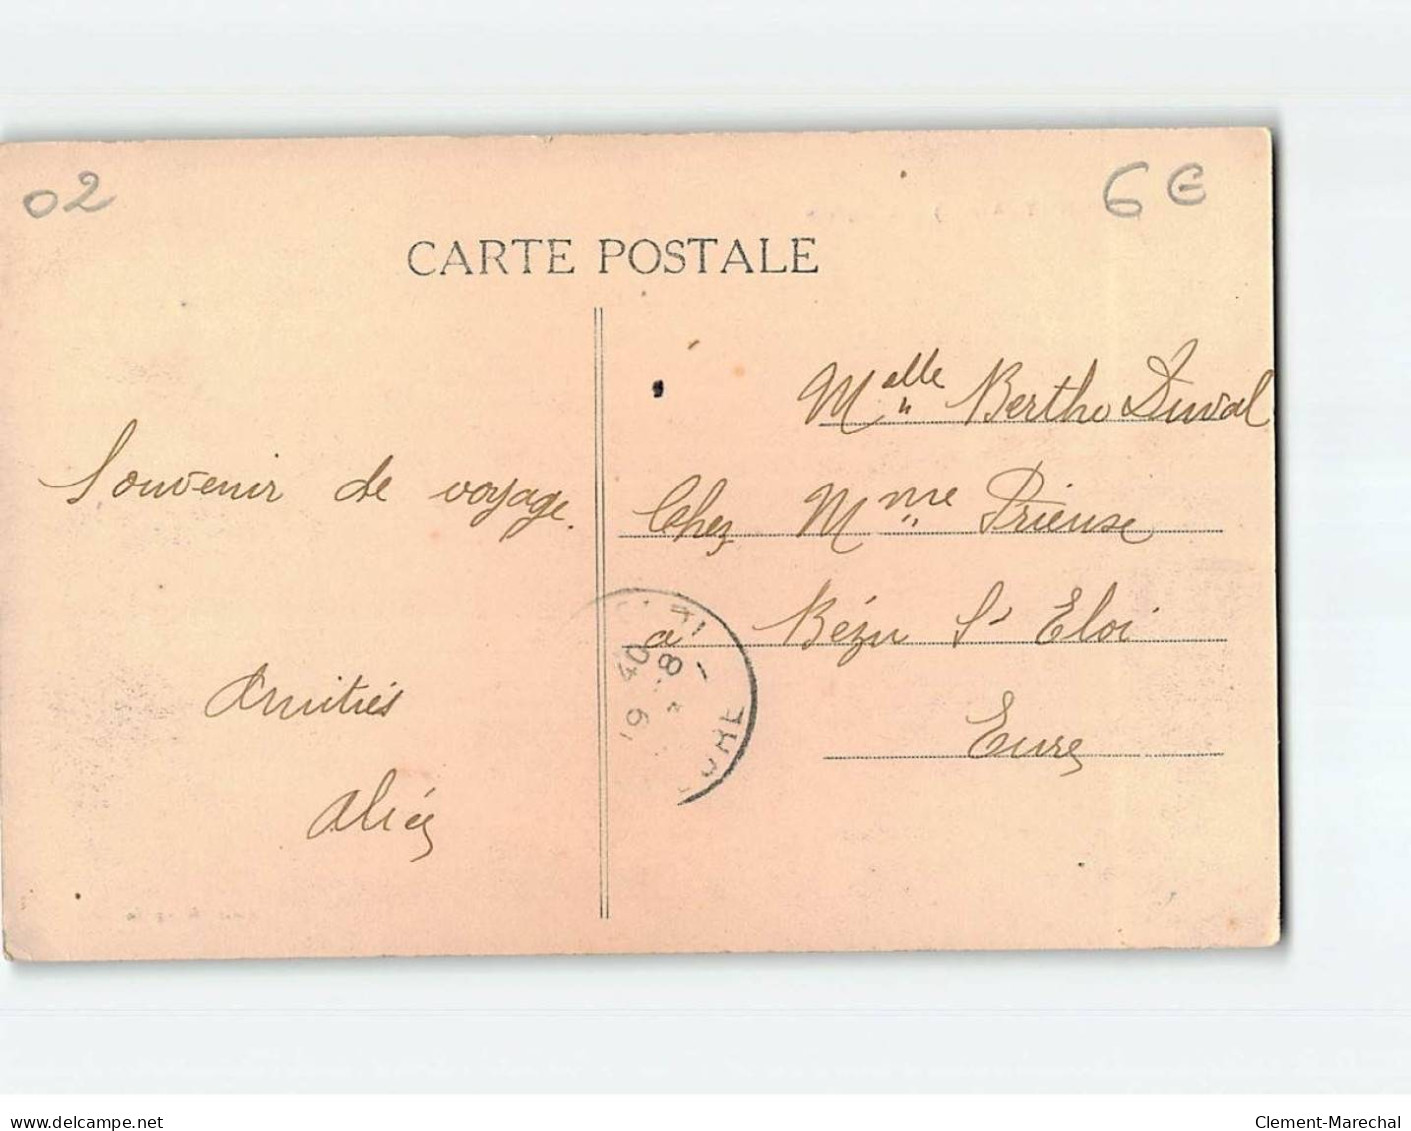 02
6 €
CARTE POSTALE
Souvenir de voyage.
Amitiés
Alice
Melle Berthe Duval
Chez Mme Prieuse
a Bézu St Eloi
Eure
19 40
8
www.delcampe.net
Clement-Marechal